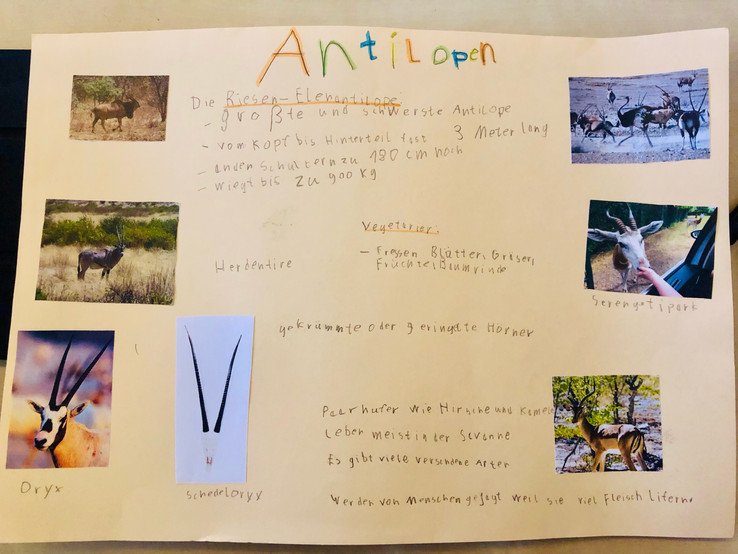 Antilopen
Die Riesen-Elenantilope
- größte und schwerste Antilope
- vom Kopf bis Hinterteil fast 3 Meter lang
- an den Schultern zu 180 cm hoch
- wiegt bis zu 900 kg
Vegetarier:
- Fressen Blätter, Gräser,
Früchte, Baumrinde
Herdentire
Serengetipark
gekrümmte oder geringelte Hörner
Paarhufer wie Hirsche und Kamele
Leben meist in der Savanne
Es gibt viele verschdene Arten
Oryx
Schedel oryx
Werden von Menschen gejagt weil sie viel Fleisch lifern